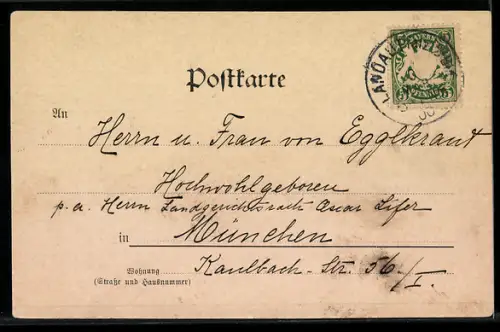 Postkarte
An
Herrn u. Frau von Egglkraut
Hochwohlgeboren
p. a. Herrn Landgerichtsrath Oscar
in München
Wohnung
(Straße und Hausnummer)
Kaulbach-Str. 56/I.
LANDAU